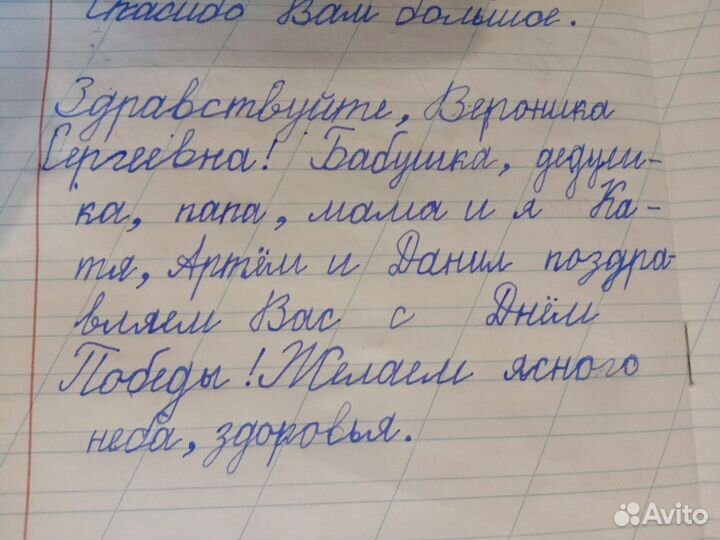 Спасибо Вам большое.
Здравствуйте, Вероника
Сергеевна! Бабушка, дедуш-
ка, папа, мама и я Ка-
тя, Артём и Данил поздра-
вляем Вас с Днём
Победы! Желаем ясного
неба, здоровья.
Avito